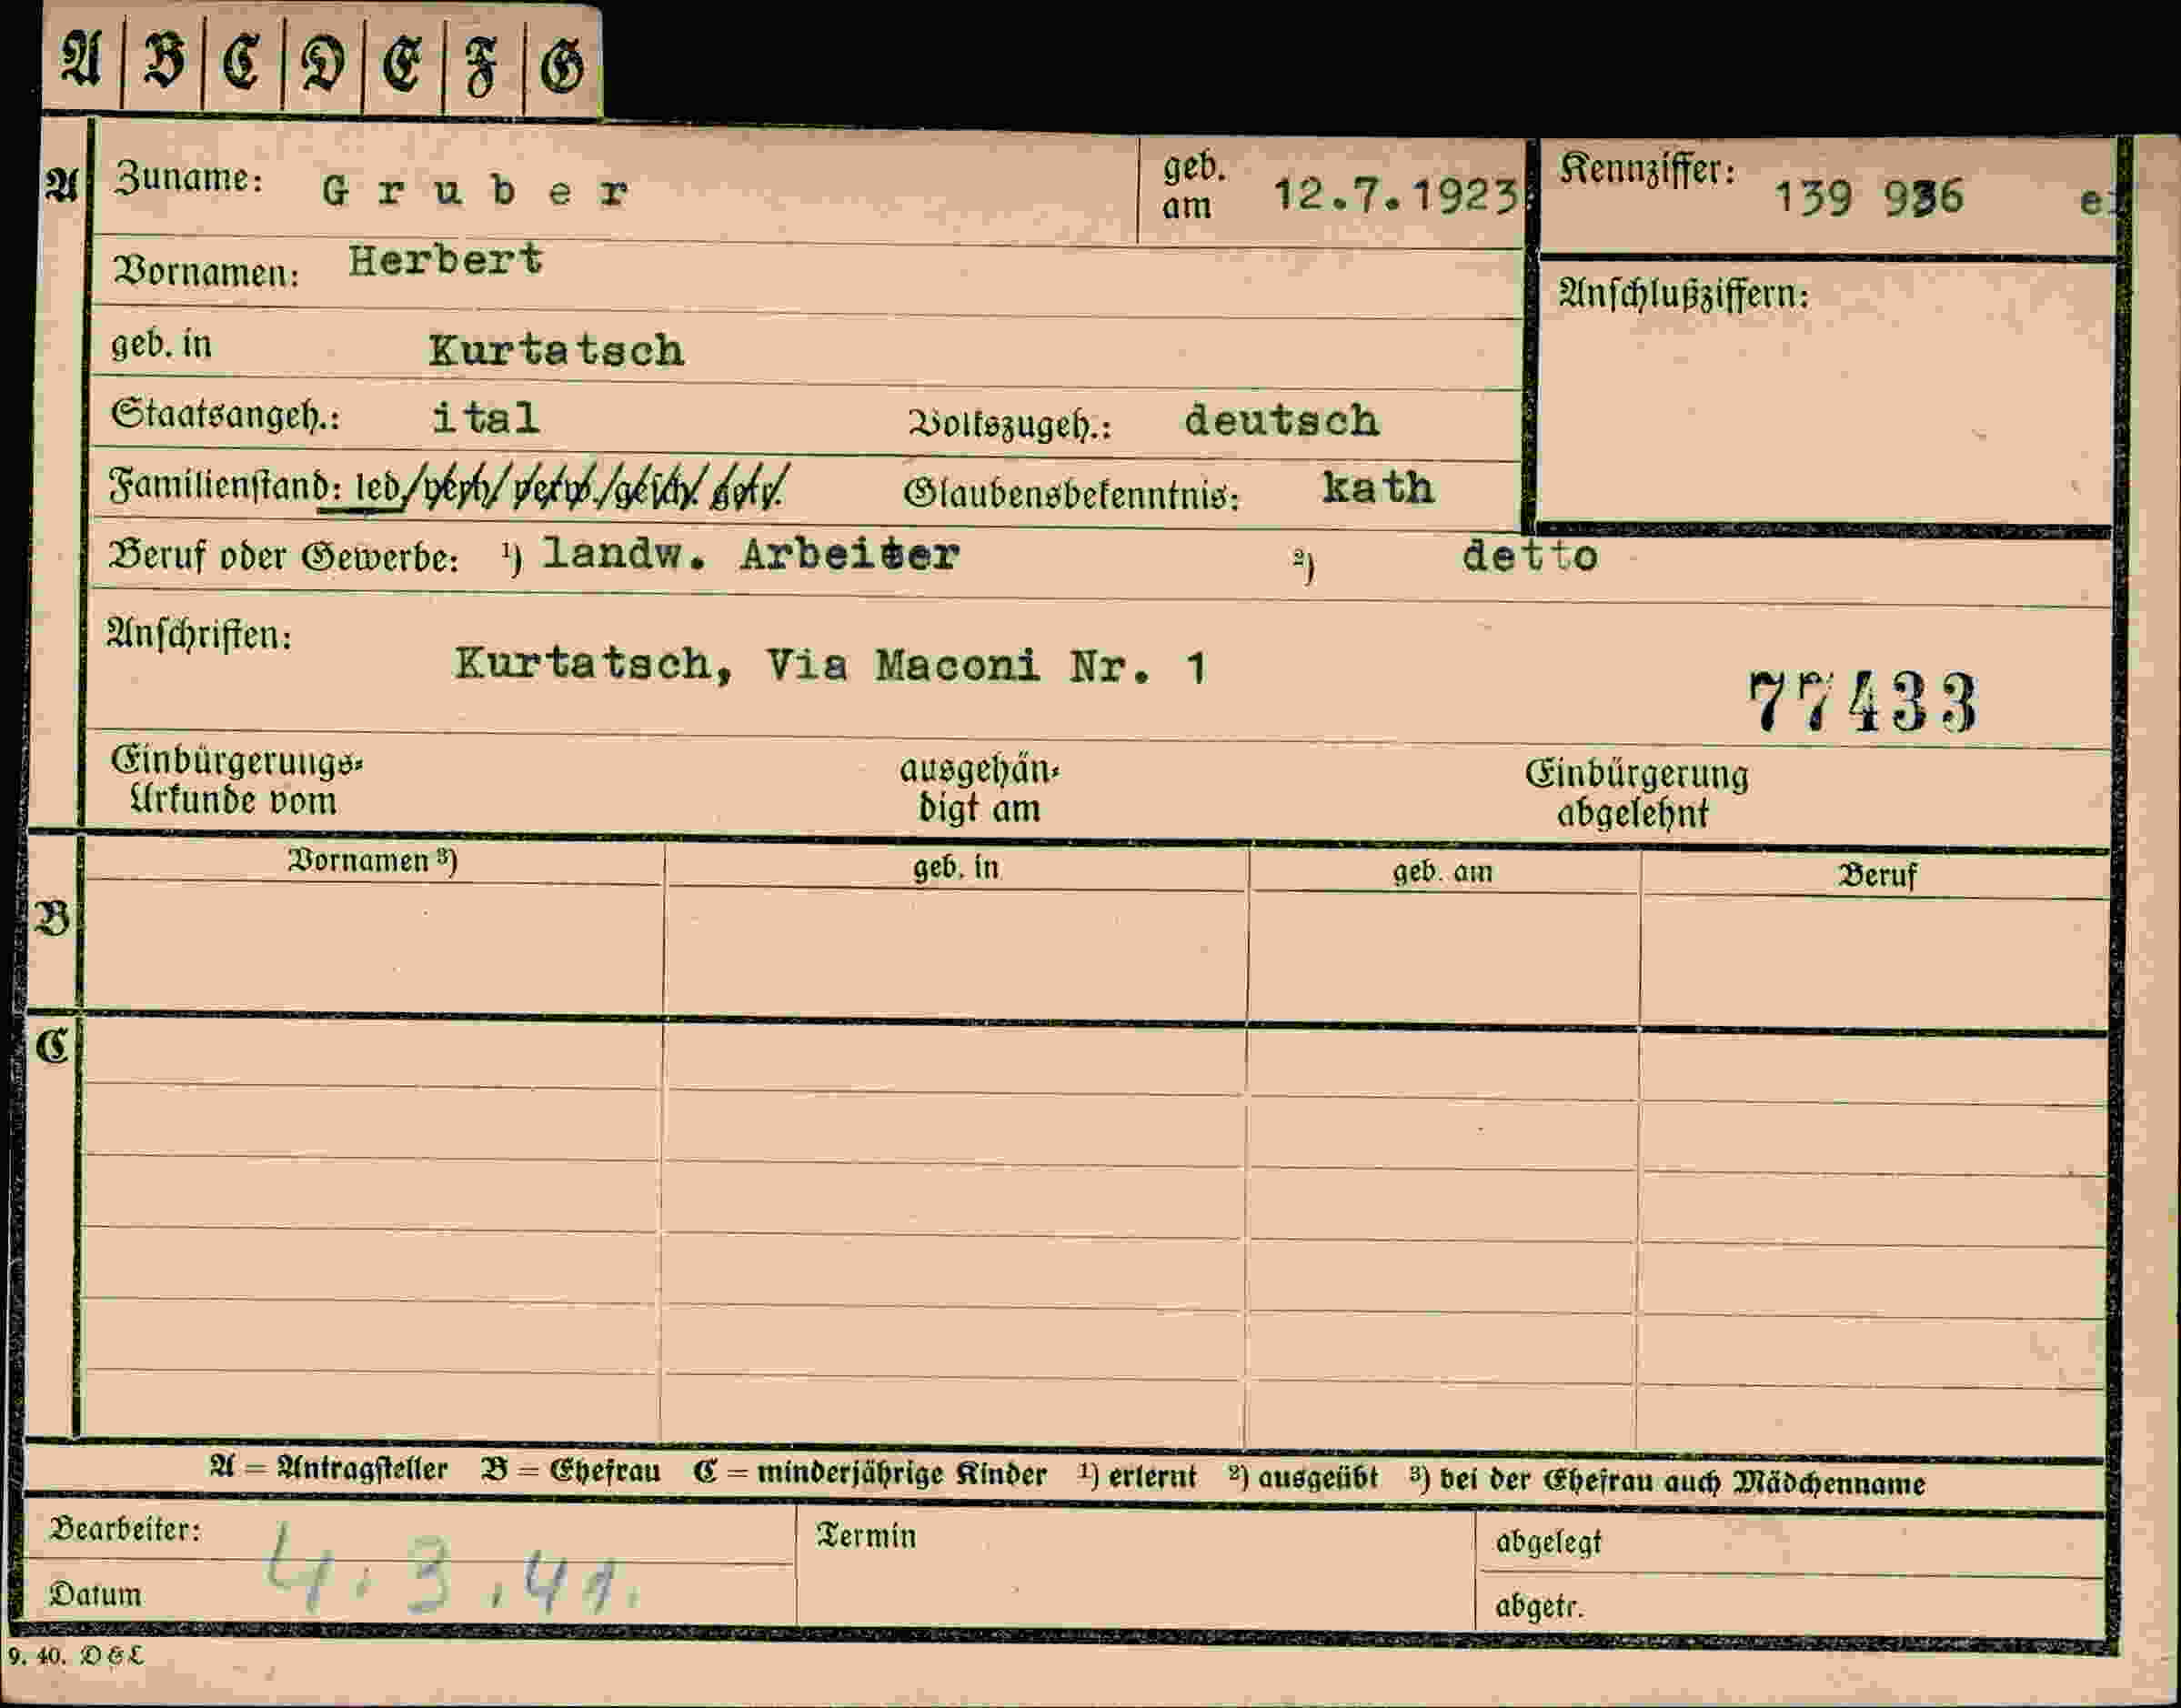 A | B | C | D | E | F | G
A Zuname: Gruber geb. am 12.7.1923 Kennziffer: 139 936
Vornamen: Herbert
Anschlußziffern:
geb. in Kurtatsch
Staatsangeh.: ital Volkszugeh.: deutsch
Familienstand: led/verh/verw./gesch. getr. Glaubensbekenntnis: kath
Beruf oder Gewerbe: ¹) landw. Arbeiter ²) detto
Anschriften: Kurtatsch, Via Maconi Nr. 1
77433
Einbürgerungs= ausgehän= Einbürgerung
Urkunde vom digt am abgelehnt
Vornamen ³) geb. in geb. am Beruf
B
C
A = Antragsteller B = Ehefrau C = minderjährige Kinder ¹) erlernt ²) ausgeübt ³) bei der Ehefrau auch Mädchenname
Bearbeiter: Termin abgelegt
4.3.41.
Datum abgetr.
9. 40. D & L